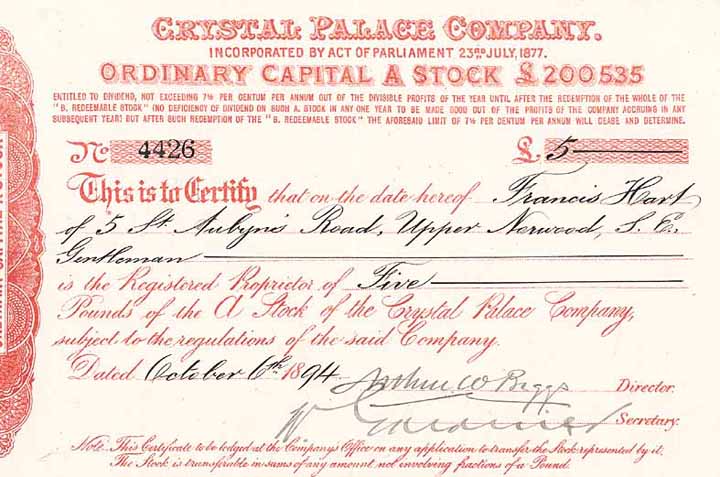 CRYSTAL PALACE COMPANY.
INCORPORATED BY ACT OF PARLIAMENT 23RD JULY, 1877.
ORDINARY CAPITAL A STOCK £200535
ENTITLED TO DIVIDEND, NOT EXCEEDING 7½ PER CENTUM PER ANNUM OUT OF THE DIVISIBLE PROFITS OF THE YEAR UNTIL AFTER THE REDEMPTION OF THE WHOLE OF THE
"B. REDEEMABLE STOCK" (NO DEFICIENCY OF DIVIDEND ON SUCH A. STOCK IN ANY ONE YEAR TO BE MADE GOOD OUT OF THE PROFITS OF THE COMPANY ACCRUING IN ANY
SUBSEQUENT YEAR) BUT AFTER SUCH REDEMPTION OF THE "B. REDEEMABLE STOCK" THE AFORESAID LIMIT OF 7½ PER CENTUM PER ANNUM WILL CEASE AND DETERMINE.
No 4426 £ 5
This is to Certify that on the date hereof Francis Hart
of 5 St. Aubyns Road, Upper Norwood, S.E.
Gentleman
is the Registered Proprietor of Five
Pounds of the A Stock of the Crystal Palace Company,
subject to the regulations of the said Company.
Dated October 6th 1894 Arthur W Biggs Director.
W Gardiner Secretary.
Note: This Certificate to be lodged at the Company's Office on any application to transfer the Stock represented by it.
The Stock is transferable in sums of any amount not involving fractions of a Pound.